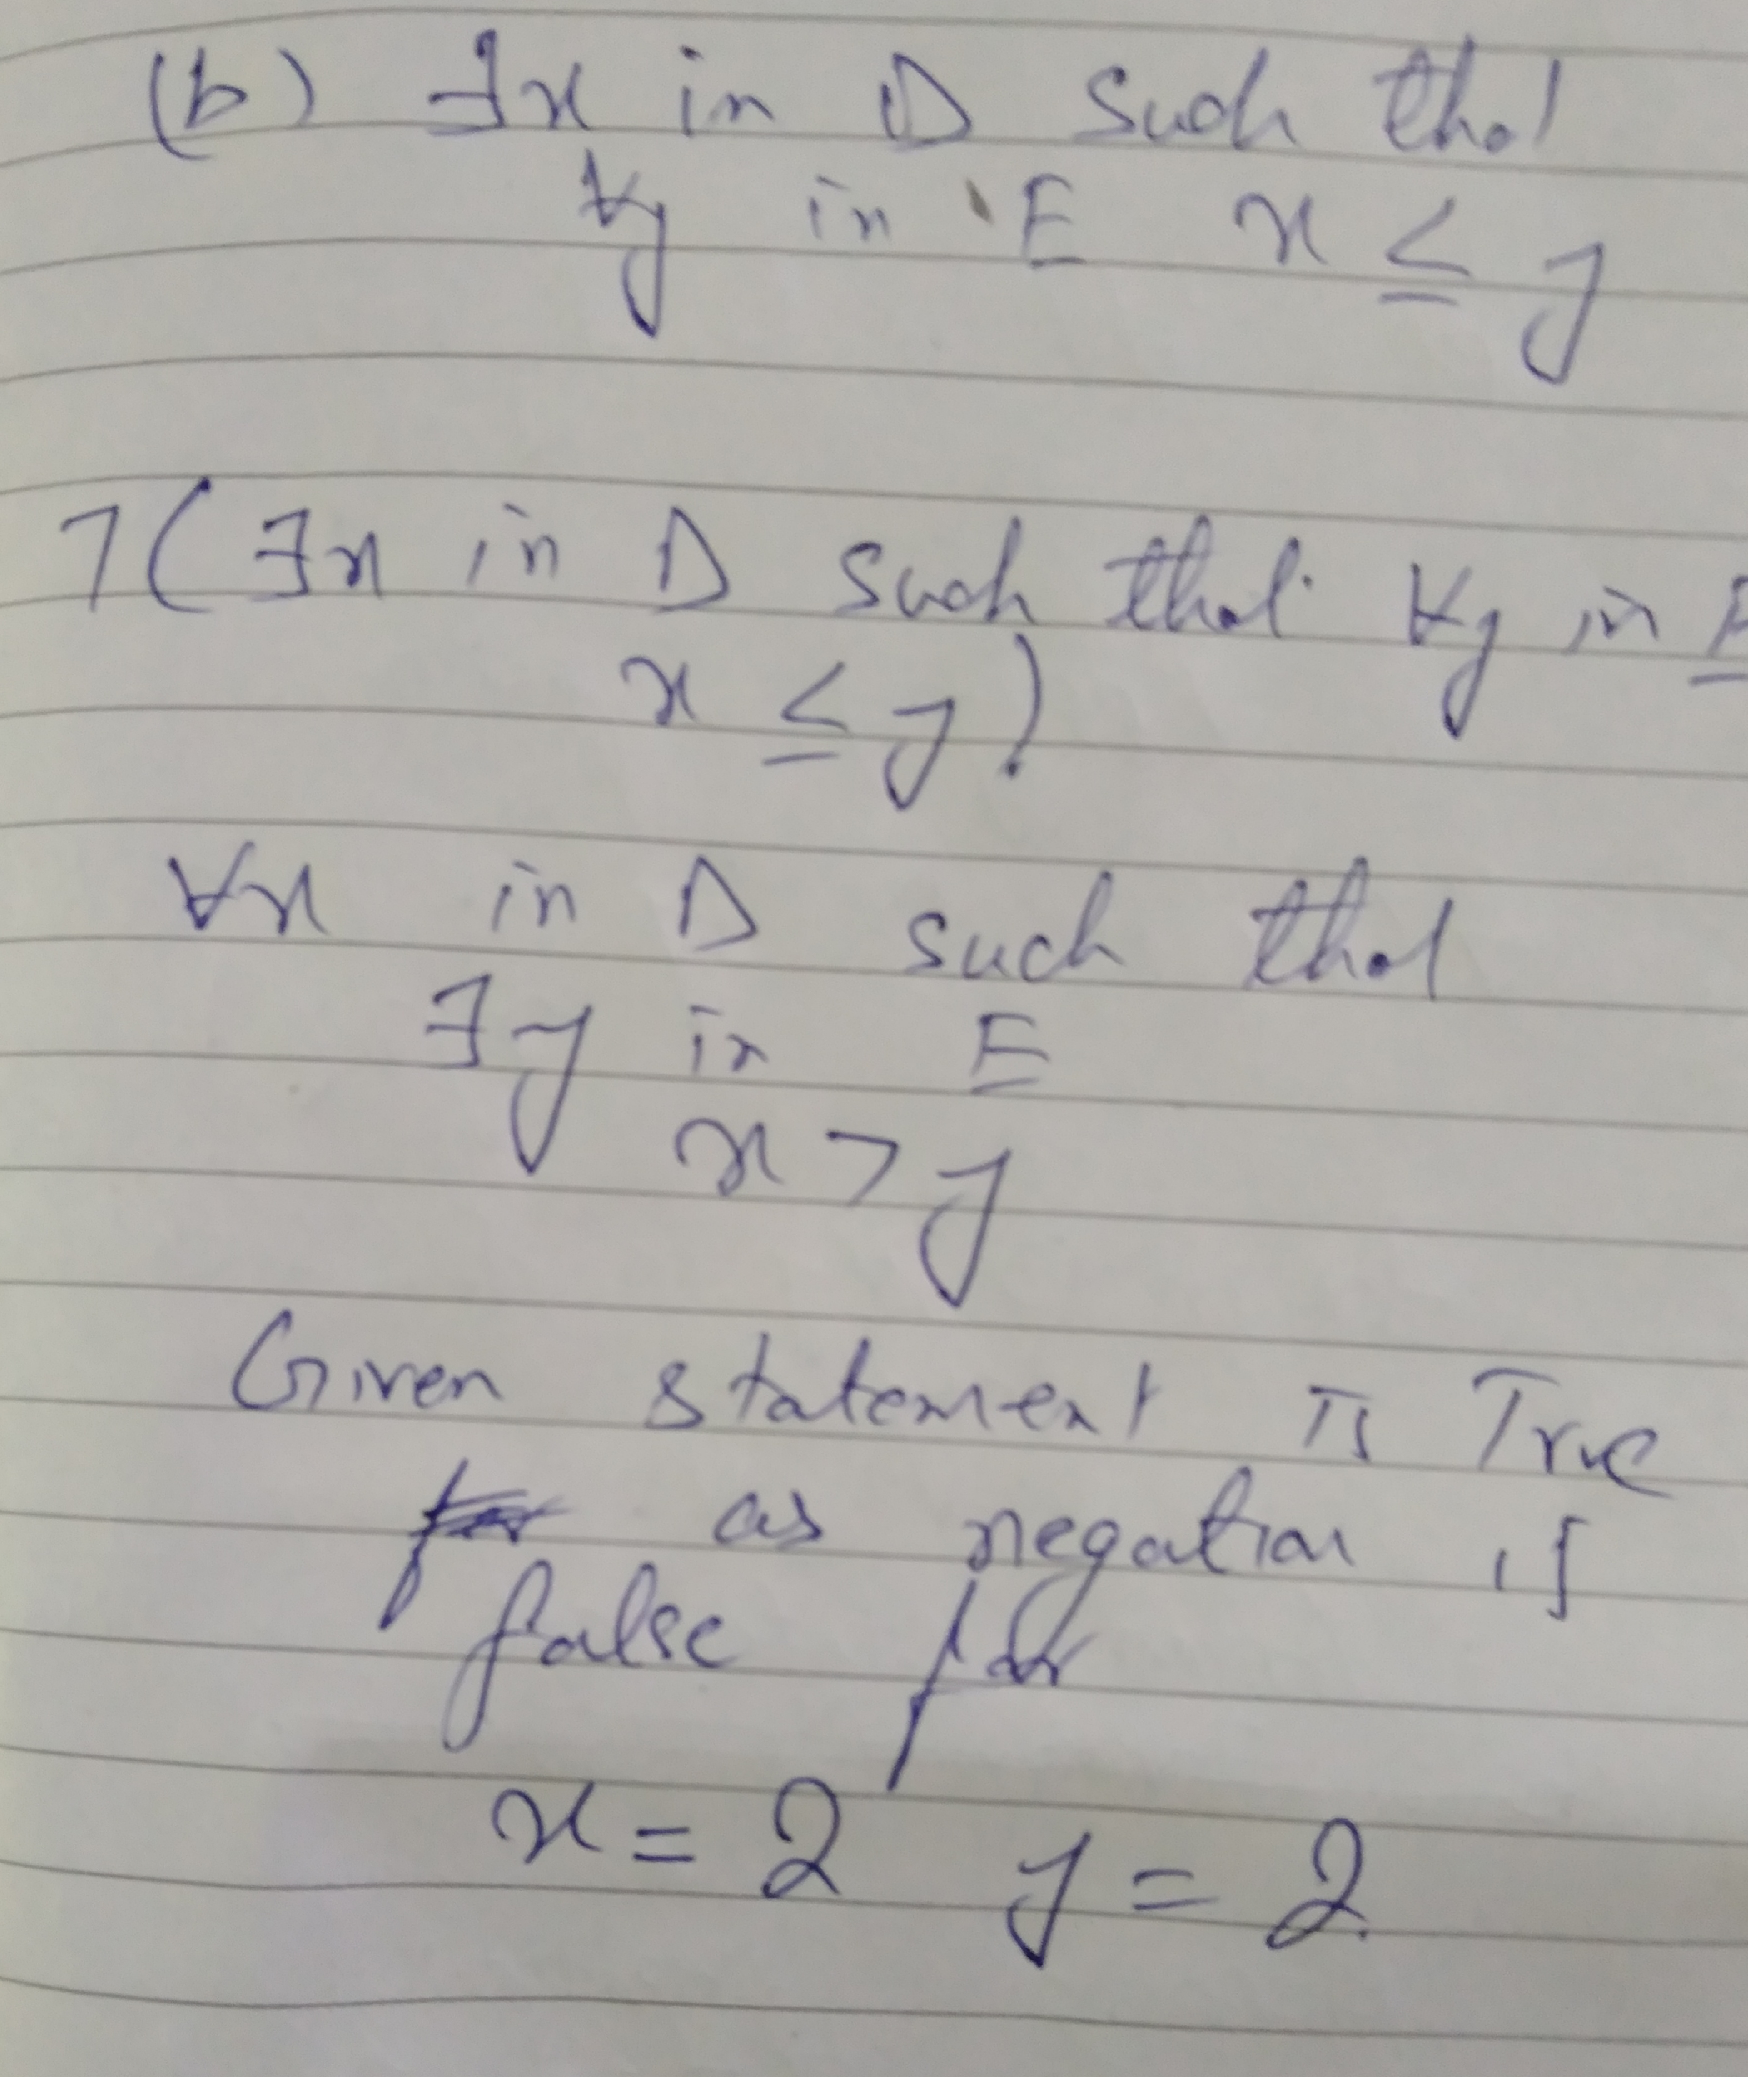 (b) ∃x in D such that
∀y in E x ≤ y
¬(∃x in D such that ∀y in E
x ≤ y)
∀x in D such that
∃y in E
x > y
Given statement is True
as negation is
false for
x = 2 y = 2